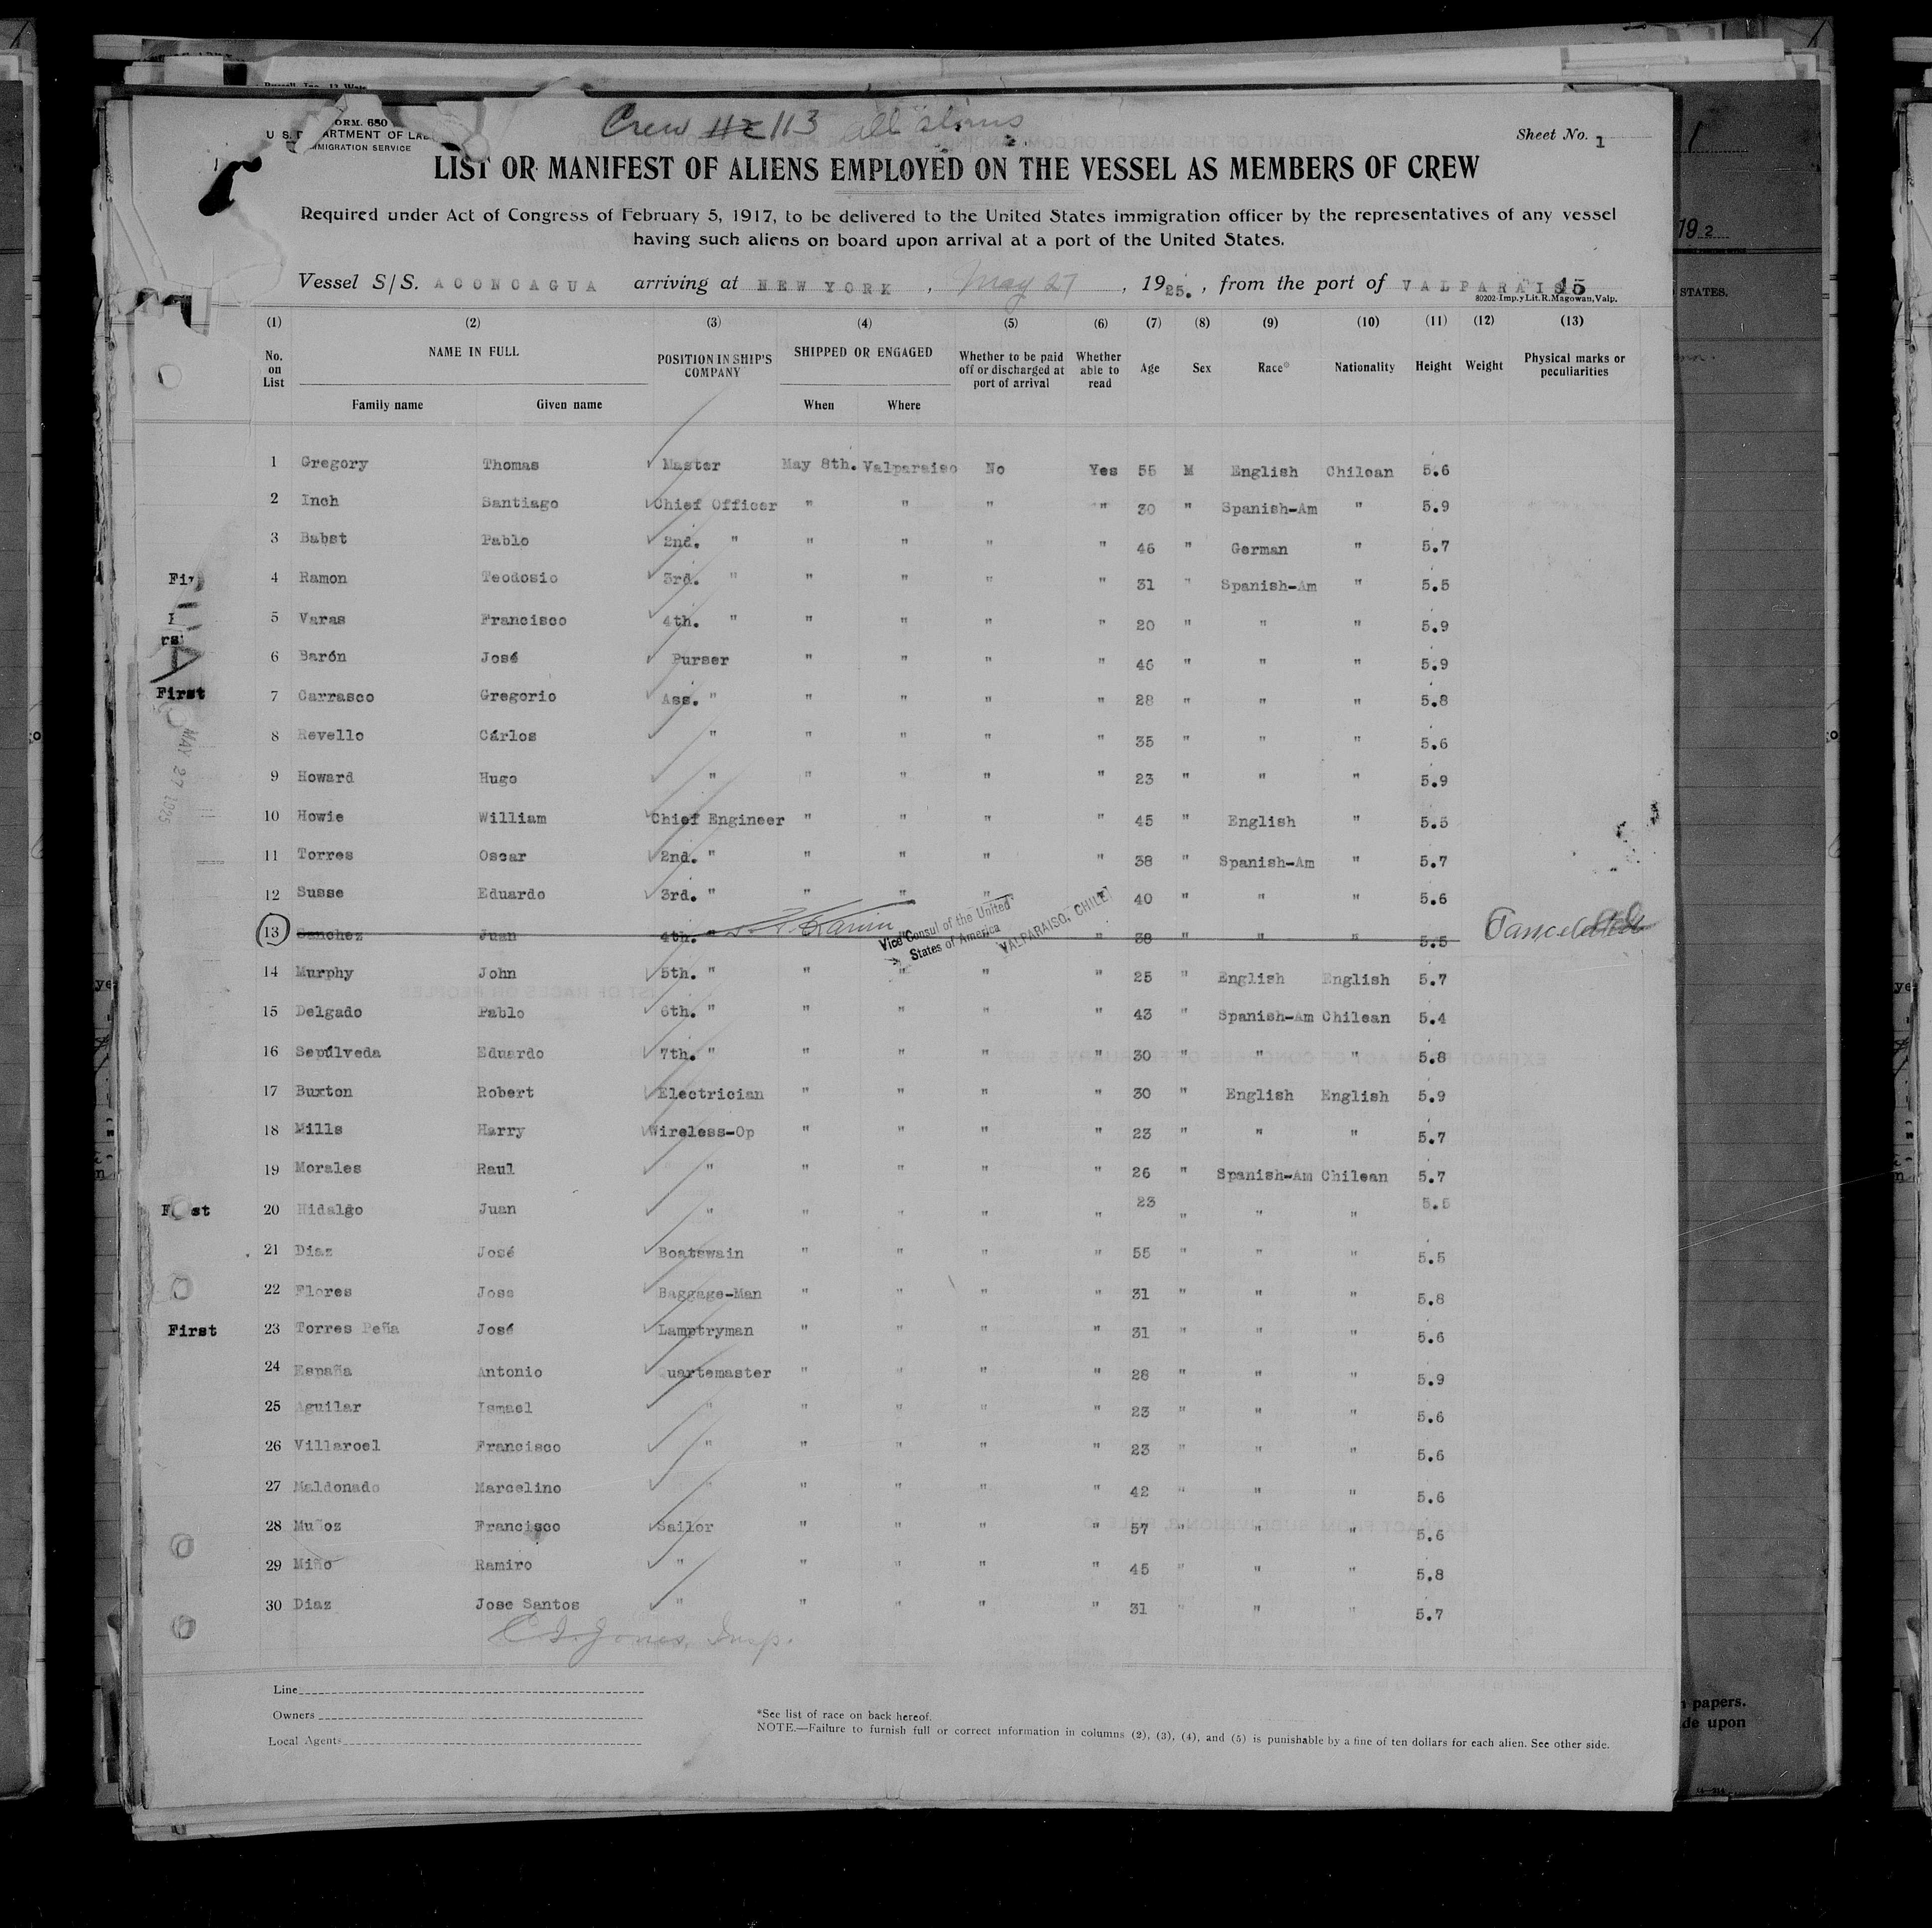 FORM. 680
U. S. DEPARTMENT OF LA
IMMIGRATION SERVICE
Crew 113 all aliens
Sheet No. 1
LIST OR MANIFEST OF ALIENS EMPLOYED ON THE VESSEL AS MEMBERS OF CREW
Required under Act of Congress of February 5, 1917, to be delivered to the United States immigration officer by the representatives of any vessel
having such aliens on board upon arrival at a port of the United States.
Vessel S/S. ACONCAGUA arriving at NEW YORK, May 27, 1925., from the port of VALPARAISO 15
80202-Imp.y Lit.R.Magowan,Valp.
(1) (2) (3) (4) (5) (6) (7) (8) (9) (10) (11) (12) (13)
No. on List NAME IN FULL POSITION IN SHIP'S COMPANY SHIPPED OR ENGAGED Whether to be paid off or discharged at port of arrival Whether able to read Age Sex Race* Nationality Height Weight Physical marks or peculiarities
Family name Given name When Where
1 Gregory Thomas Master May 8th. Valparaiso No Yes 55 M English Chilean 5.6
2 Inch Santiago Chief Officer " " " " 30 " Spanish-Am " 5.9
3 Babst Pablo 2nd. " " " " " 46 " German " 5.7
4 Ramon Teodosio 3rd. " " " " " 31 " Spanish-Am " 5.5
5 Varas Francisco 4th. " " " " " 20 " " " 5.9
6 Barón José Purser " " " " 46 " " " 5.9
First 7 Carrasco Gregorio Ass. " " " " " 28 " " " 5.8
8 Revello Cárlos " " " " " 35 " " " 5.6
9 Howard Hugo " " " " " 23 " " " 5.9
MAY 27 1925
10 Howie William Chief Engineer " " " " 45 " English " 5.5
11 Torres Oscar 2nd. " " " " " 38 " Spanish-Am " 5.7
12 Susse Eduardo 3rd. " " " " " 40 " " " 5.6
13 Sanchez Juan 4th. " " 38 " " " 5.5
Vice Consul of the United
States of America
VALPARAISO, CHILE
14 Murphy John 5th. " " " " " 25 " English English 5.7
15 Delgado Pablo 6th. " " " " " 43 " Spanish-Am Chilean 5.4
16 Sepúlveda Eduardo 7th. " " " " " 30 " " " 5.8
17 Buxton Robert Electrician " " " " 30 " English English 5.9
18 Mills Harry Wireless-Op " " " " 23 " " " 5.7
19 Morales Raul " " " " " 26 " Spanish-Am Chilean 5.7
20 Hidalgo Juan " " " " " 23 " " " 5.5
21 Diaz José Boatswain " " " " 55 " " " 5.5
22 Flores Jose Baggage-Man " " " " 31 " " " 5.8
First 23 Torres Peña José Lamptryman " " " " 31 " " " 5.6
24 España Antonio Quartemaster " " " " 28 " " " 5.9
25 Aguilar Ismael " " " " " 23 " " " 5.6
26 Villaroel Francisco " " " " " 23 " " " 5.6
27 Maldonado Marcelino " " " " " 42 " " " 5.6
28 Muñoz Francisco Sailor " " " " 57 " " " 5.6
29 Miño Ramiro " " " " " 45 " " " 5.8
30 Diaz Jose Santos " " " " " 31 " " " 5.7
Jones, Insp.
Line
Owners
Local Agents
*See list of race on back hereof.
NOTE.—Failure to furnish full or correct information in columns (2), (3), (4), and (5) is punishable by a fine of ten dollars for each alien. See other side.
19 2
STATES.
papers.
de upon